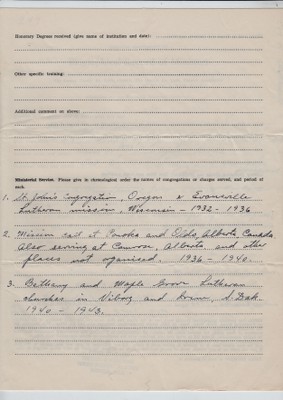 Honorary Degrees received (give name of institution and date):
Other specific training:
Additional comment on above:
Ministerial Service. Please give in chronological order the names of congregations or charges served, and period of
each.
1. St. John's Congregation, Oregon & Evansville
Lutheran mission, Wisconsin - 1932 - 1936
2. Mission call at Ponoka and Olds, Alberta, Canada
Also serving at Camrose, Alberta, and other
places not organized. 1936 - 1940.
3. Bethany and Maple Grove Lutheran
churches in Viborg and Irene, S. Dak.
1940 - 1943.